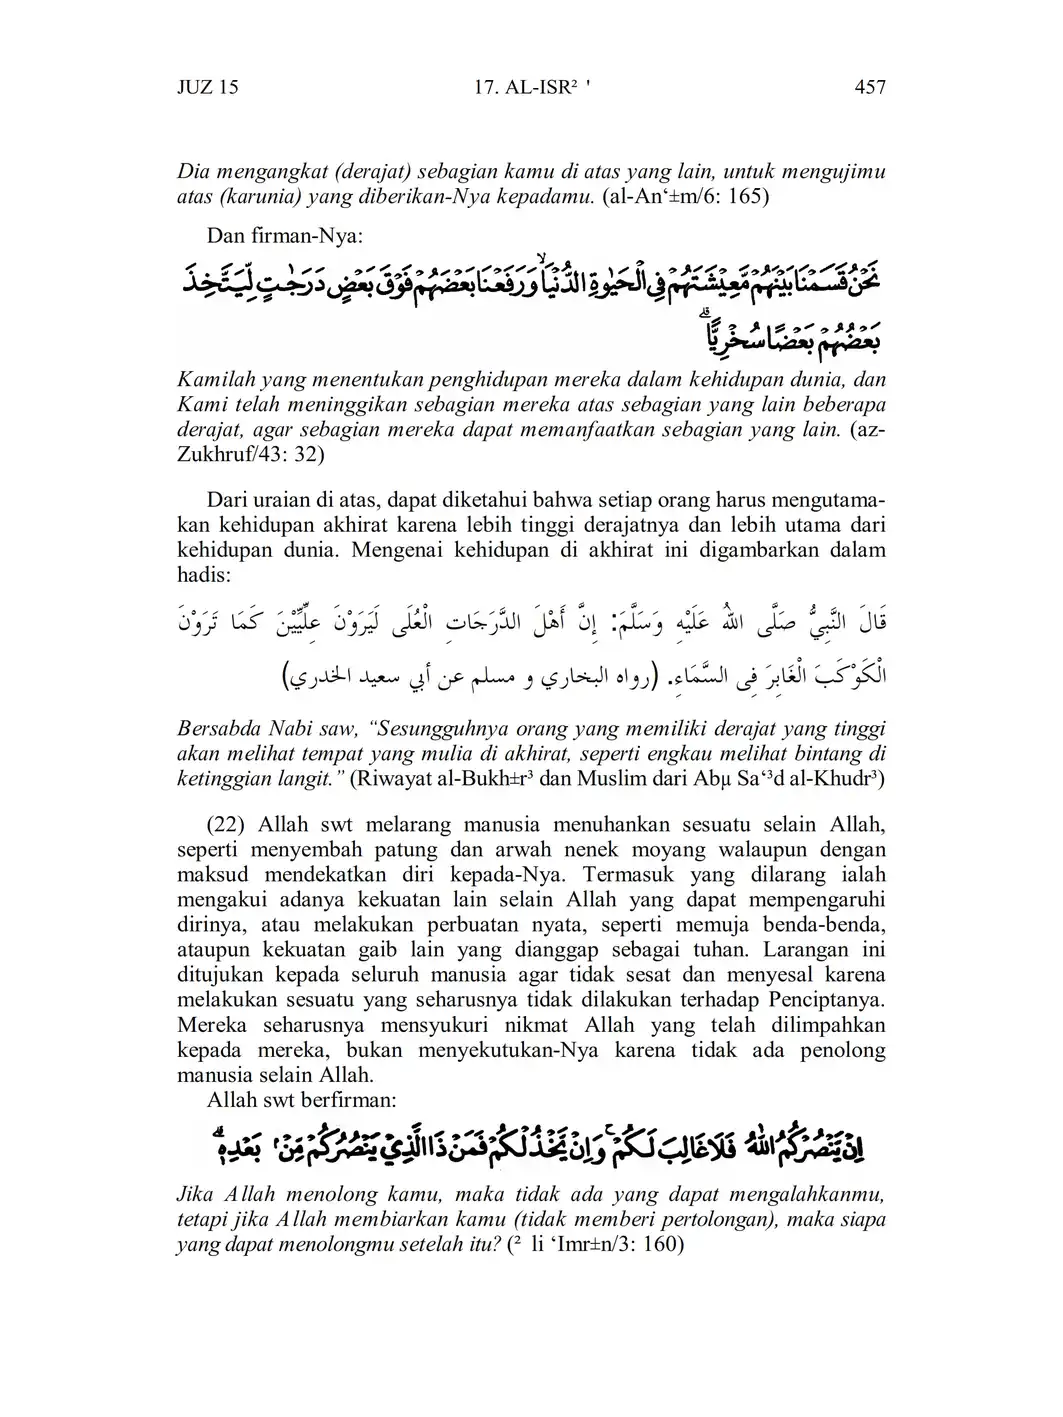 JUZ 15 17. AL-ISR² ' 457
Dia mengangkat (derajat) sebagian kamu di atas yang lain, untuk mengujimu
atas (karunia) yang diberikan-Nya kepadamu. (al-An‘±m/6: 165)
Dan firman-Nya:
نَحْنُ قَسَمْنَا بَيْنَهُمْ مَّعِيْشَتَهُمْ فِى الْحَيٰوةِ الدُّنْيَاۙ وَرَفَعْنَا بَعْضَهُمْ فَوْقَ بَعْضٍ دَرَجٰتٍ لِّيَتَّخِذَ
بَعْضُهُمْ بَعْضًا سُخْرِيًّاۗ
Kamilah yang menentukan penghidupan mereka dalam kehidupan dunia, dan
Kami telah meninggikan sebagian mereka atas sebagian yang lain beberapa
derajat, agar sebagian mereka dapat memanfaatkan sebagian yang lain. (az-
Zukhruf/43: 32)
Dari uraian di atas, dapat diketahui bahwa setiap orang harus mengutama-
kan kehidupan akhirat karena lebih tinggi derajatnya dan lebih utama dari
kehidupan dunia. Mengenai kehidupan di akhirat ini digambarkan dalam
hadis:
قَالَ النَّبِيُّ صَلَّى اللهُ عَلَيْهِ وَسَلَّمَ: إِنَّ أَهْلَ الدَّرَجَاتِ الْعُلَى لَيَرَوْنَ عِلِّيِّيْنَ كَمَا تَرَوْنَ
الْكَوْكَبَ الْغَابِرَ فِى السَّمَاءِ. (رواه البخاري و مسلم عن أبي سعيد الخدري)
Bersabda Nabi saw, “Sesungguhnya orang yang memiliki derajat yang tinggi
akan melihat tempat yang mulia di akhirat, seperti engkau melihat bintang di
ketinggian langit.” (Riwayat al-Bukh±r³ dan Muslim dari Abµ Sa‘³d al-Khudr³)
(22) Allah swt melarang manusia menuhankan sesuatu selain Allah,
seperti menyembah patung dan arwah nenek moyang walaupun dengan
maksud mendekatkan diri kepada-Nya. Termasuk yang dilarang ialah
mengakui adanya kekuatan lain selain Allah yang dapat mempengaruhi
dirinya, atau melakukan perbuatan nyata, seperti memuja benda-benda,
ataupun kekuatan gaib lain yang dianggap sebagai tuhan. Larangan ini
ditujukan kepada seluruh manusia agar tidak sesat dan menyesal karena
melakukan sesuatu yang seharusnya tidak dilakukan terhadap Penciptanya.
Mereka seharusnya mensyukuri nikmat Allah yang telah dilimpahkan
kepada mereka, bukan menyekutukan-Nya karena tidak ada penolong
manusia selain Allah.
Allah swt berfirman:
اِنْ يَّنْصُرْكُمُ اللّٰهُ فَلَا غَالِبَ لَكُمْ ۚ وَاِنْ يَّخْذُلْكُمْ فَمَنْ ذَا الَّذِيْ يَنْصُرُكُمْ مِّنْۢ بَعْدِهٖ ۗ
Jika Allah menolong kamu, maka tidak ada yang dapat mengalahkanmu,
tetapi jika Allah membiarkan kamu (tidak memberi pertolongan), maka siapa
yang dapat menolongmu setelah itu? (² li ‘Imr±n/3: 160)